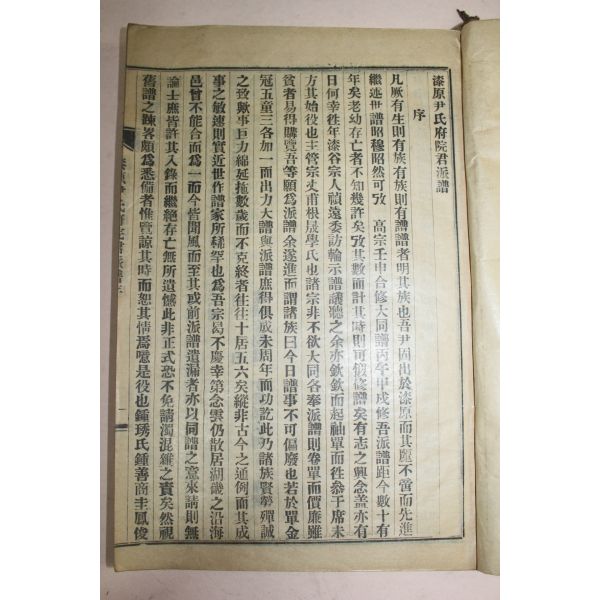 漆原尹氏府院君派譜
序
凡厥有生則有族有族則有譜譜者明其族也吾尹固出於漆原而其麗不啻而先進
繼述世譜昭穆昭然可攷 高宗壬申合修大同譜丙午甲戌修吾派譜距今數十有
年矣老幼存亡者不知幾許矣攷其數而計其時則可復修譜矣有志之興念盖亦有
日何幸徃年漆谷宗人禎遠委訪輪示譜議聽之余亦欽欽而起袖單而徃叅于席未
方其始役也主管宗丈甫根晟學氏也諸宗非不欲大同各奉派譜則卷單而價廉雖
貧者易得購覽吾等願爲派譜余遂進而謂諸族曰今日譜事不可偏廢也若於單金
冠五童三各加一而出力大譜與派譜庶得俱成未周年而功訖此乃諸族賢勞殫誠
之致歟事巨力綿延拖數歲而不克終者徃徃十居五六矣縱非古今之通例而其成
事之敏速則實近世作譜家所稀罕也爲吾宗曷不慶幸第念雲仍散居湖畿之沿海
邑曾不能合而爲一而今皆聞風而至其或前派譜遺漏者亦以同譜之意來請則無
論士庶皆許其入錄而繼絶存亡無所遺憾此非正式恐不免請濁混雜之責矣然視
舊譜之踈畧頗爲悉備者惟覽諒其時而恕其情焉噫是役也鍾琇氏鍾善商圭鳳俊